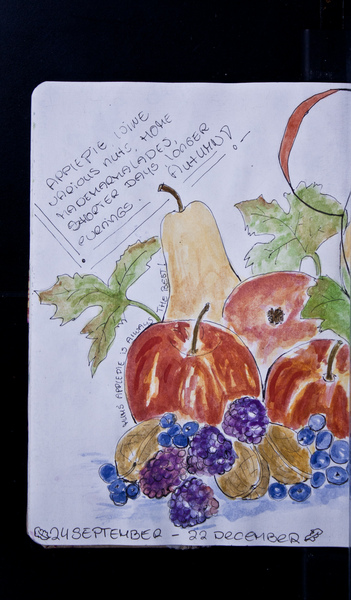 APPLEPIE WINE
VARIOUS NUTS, HOME
MADEMARMALADES,
SHORTER DAYS LONGER
EVENINGS. AUTUMN!
MUM'S APPLEPIE IS ALWAYS THE BEST!
24 SEPTEMBER - 22 DECEMBER